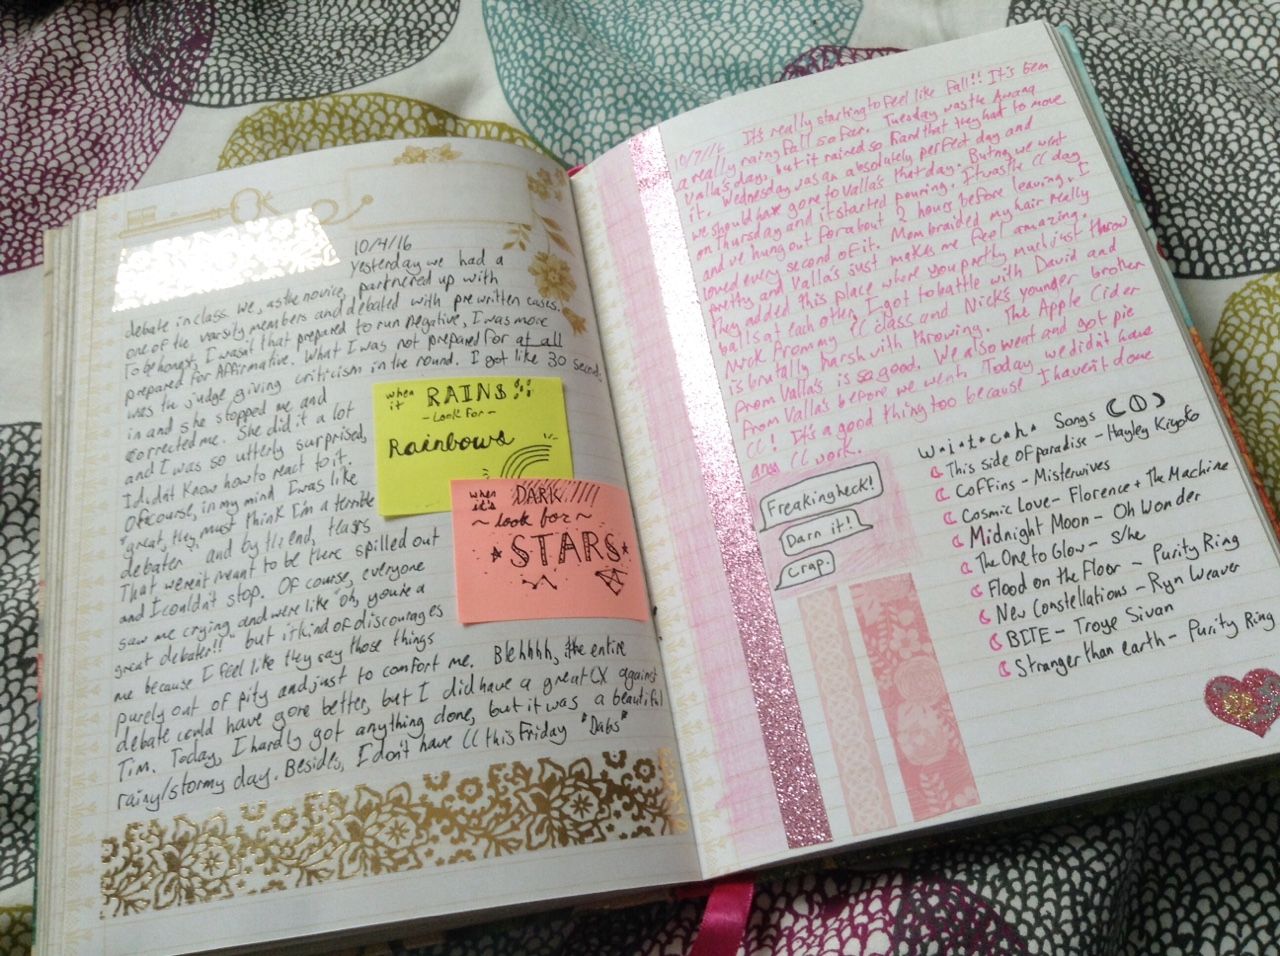 10/4/16
Yesterday we had a
debate in class. We, as the novice, partnered up with
one of the varsity members and debated with prewritten cases.
To be honest, I wasn't that prepared to run negative, I was more
prepared for Affirmative. What I was not prepared for at all
was the judge giving criticism in the round. I got like 30 seconds
in and she stopped me and
corrected me. She did it a lot
and I was so utterly surprised,
I didn't know how to react to it.
Of course, in my mind I was like
"great, they must think I'm a terrible
debater" and by the end, tears
That weren't meant to be there spilled out
and I couldn't stop. Of course, everyone
saw me crying and were like "oh, you're a
great debater!!" but it kind of discourages
me because I feel like they say those things
purely out of pity and just to comfort me. Blehhhh, the entire
debate could have gone better, but I did have a great CX against
Tim. Today, I hardly got anything done, but it was a beautiful
rainy/stormy day. Besides, I don't have CC this Friday *Dabs*
when it RAINS
-Look for-
Rainbows
when it's DARK
~look for~
STARS
It's really starting to feel like fall!! It's been
10/7/16
a really rainy Fall so far. Tuesday was the Awana
Valla's day, but it rained so hard that they had to move
it. Wednesday was an absolutely perfect day and
we should have gone to Valla's that day. But no, we went
on Thursday and it started pouring. It was the CC day
and we hung out for about 2 hours before leaving. I
loved every second of it. Mom braided my hair really
pretty and Valla's just makes me feel amazing.
They added this place where you pretty much just throw
balls at each other, I got to battle with David and
Nick from my CC class and Nick's younger brother
is brutally harsh with throwing. The Apple Cider
from Valla's is so good. We also went and got pie
from Valla's before we went. Today we didn't have
CC! It's a good thing too because I haven't done
any CC work.
Freaking heck!
Darn it!
Crap.
w.i.t.c.h. Songs
This side of paradise - Hayley Kiyoko
Coffins - Misterwives
Cosmic Love - Florence + The Machine
Midnight Moon - Oh Wonder
The One to Glow - s/he
Flood on the Floor - Purity Ring
New Constellations - Ryn Weaver
BITE - Troye Sivan
Stranger than earth - Purity Ring